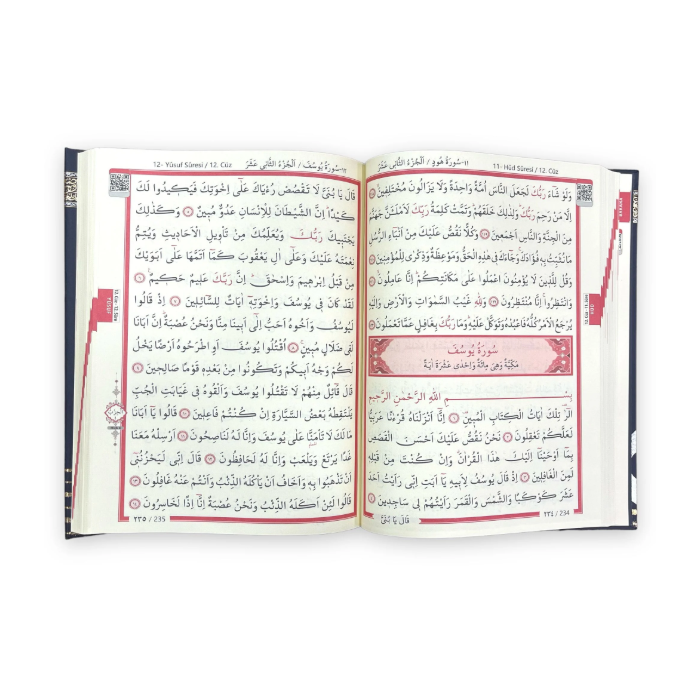 11- Hûd Sûresi / 12. Cüz
١١-سُورَةُ هُودٍ / اَلْجُزْءُ الثَّانِي عَشَرَ
وَلَوْ شَٓاءَ رَبُّكَ لَجَعَلَ النَّاسَ اُمَّةً وَاحِدَةً وَلَا يَزَالُونَ مُخْتَلِفٖينَ
اِلَّا مَنْ رَحِمَ رَبُّكَ وَلِذٰلِكَ خَلَقَهُمْ وَتَمَّتْ كَلِمَةُ رَبِّكَ لَاَمْلَـَٔنَّ جَهَنَّمَ
مِنَ الْجِنَّةِ وَالنَّاسِ اَجْمَعٖينَ وَكُلًّا نَقُصُّ عَلَيْكَ مِنْ اَنْبَٓاءِ الرُّسُلِ
مَا نُثَبِّتُ بِهٖ فُؤٰادَكَ وَجَٓاءَكَ فٖي هٰذِهِ الْحَقُّ وَمَوْعِظَةٌ وَذِكْرٰى لِلْمُؤْمِنٖينَ
وَقُلْ لِلَّذٖينَ لَا يُؤْمِنُونَ اعْمَلُوا عَلٰى مَكَانَتِكُمْ اِنَّا عَامِلُونَ
وَانْتَظِرُوا اِنَّا مُنْتَظِرُونَ وَلِلّٰهِ غَيْبُ السَّمٰوَاتِ وَالْاَرْضِ وَاِلَيْهِ
يُرْجَعُ الْاَمْرُ كُلُّهُ فَاعْبُدْهُ وَتَوَكَّلْ عَلَيْهِ وَمَا رَبُّكَ بِغَافِلٍ عَمَّا تَعْمَلُونَ
سُورَةُ يُوسُفَ
مَكِّيَّةٌ وَهِيَ مِائَةٌ وَاِحْدٰى عَشْرَةَ اٰيَةً
بِسْمِ اللّٰهِ الرَّحْمٰنِ الرَّحٖيمِ
الٓرٰ تِلْكَ اٰيَاتُ الْكِتَابِ الْمُبٖينِ اِنَّٓا اَنْزَلْنَاهُ قُرْاٰنًا عَرَبِيًّا
لَعَلَّكُمْ تَعْقِلُونَ نَحْنُ نَقُصُّ عَلَيْكَ اَحْسَنَ الْقَصَصِ
بِمَٓا اَوْحَيْنَٓا اِلَيْكَ هٰذَا الْقُرْاٰنَ وَاِنْ كُنْتَ مِنْ قَبْلِهٖ
لَمِنَ الْغَافِلٖينَ اِذْ قَالَ يُوسُفُ لِاَبٖيهِ يَٓا اَبَتِ اِنّٖي رَاَيْتُ اَحَدَ
عَشَرَ كَوْكَبًا وَالشَّمْسَ وَالْقَمَرَ رَاَيْتُهُمْ لٖي سَاجِدٖينَ
٢٣٤ / 234
قَالَ يَا بُنَيَّ
12- Yûsuf Sûresi / 12. Cüz
١٢-سُورَةُ يُوسُفَ / اَلْجُزْءُ الثَّانِي عَشَرَ
قَالَ يَا بُنَيَّ لَا تَقْصُصْ رُءْيَاكَ عَلٰٓى اِخْوَتِكَ فَيَكٖيدُوا لَكَ
كَيْدًا اِنَّ الشَّيْطَانَ لِلْاِنْسَانِ عَدُوٌّ مُبٖينٌ وَكَذٰلِكَ
يَجْتَبٖيكَ رَبُّكَ وَيُعَلِّمُكَ مِنْ تَأْوٖيلِ الْاَحَادٖيثِ وَيُتِمُّ
نِعْمَتَهُ عَلَيْكَ وَعَلٰٓى اٰلِ يَعْقُوبَ كَمَٓا اَتَمَّهَا عَلٰٓى اَبَوَيْكَ
مِنْ قَبْلُ اِبْرٰهٖيمَ وَاِسْحٰقَ اِنَّ رَبَّكَ عَلٖيمٌ حَكٖيمٌ
لَقَدْ كَانَ فٖي يُوسُفَ وَاِخْوَتِهٖٓ اٰيَاتٌ لِلسَّٓائِلٖينَ اِذْ قَالُوا
لَيُوسُفُ وَاَخُوهُ اَحَبُّ اِلٰٓى اَبٖينَا مِنَّا وَنَحْنُ عُصْبَةٌ اِنَّ اَبَانَا
لَفٖي ضَلَالٍ مُبٖينٍ اُقْتُلُوا يُوسُفَ اَوِ اطْرَحُوهُ اَرْضًا يَخْلُ
لَكُمْ وَجْهُ اَبٖيكُمْ وَتَكُونُوا مِنْ بَعْدِهٖ قَوْمًا صَالِحٖينَ
قَالَ قَٓائِلٌ مِنْهُمْ لَا تَقْتُلُوا يُوسُفَ وَاَلْقُوهُ فٖي غَيَابَتِ الْجُبِّ
يَلْتَقِطْهُ بَعْضُ السَّيَّارَةِ اِنْ كُنْتُمْ فَاعِلٖينَ قَالُوا يَٓا اَبَانَا
مَا لَكَ لَا تَأْمَنَّا عَلٰى يُوسُفَ وَاِنَّا لَهُ لَنَاصِحُونَ اَرْسِلْهُ مَعَنَا
غَدًا يَرْتَعْ وَيَلْعَبْ وَاِنَّا لَهُ لَحَافِظُونَ قَالَ اِنّٖي لَيَحْزُنُنٖٓي
اَنْ تَذْهَبُوا بِهٖ وَاَخَافُ اَنْ يَأْكُلَهُ الذِّئْبُ وَاَنْتُمْ عَنْهُ غَافِلُونَ
قَالُوا لَئِنْ اَكَلَهُ الذِّئْبُ وَنَحْنُ عُصْبَةٌ اِنَّٓا اِذًا لَخَاسِرُونَ
٢٣٥ / 235